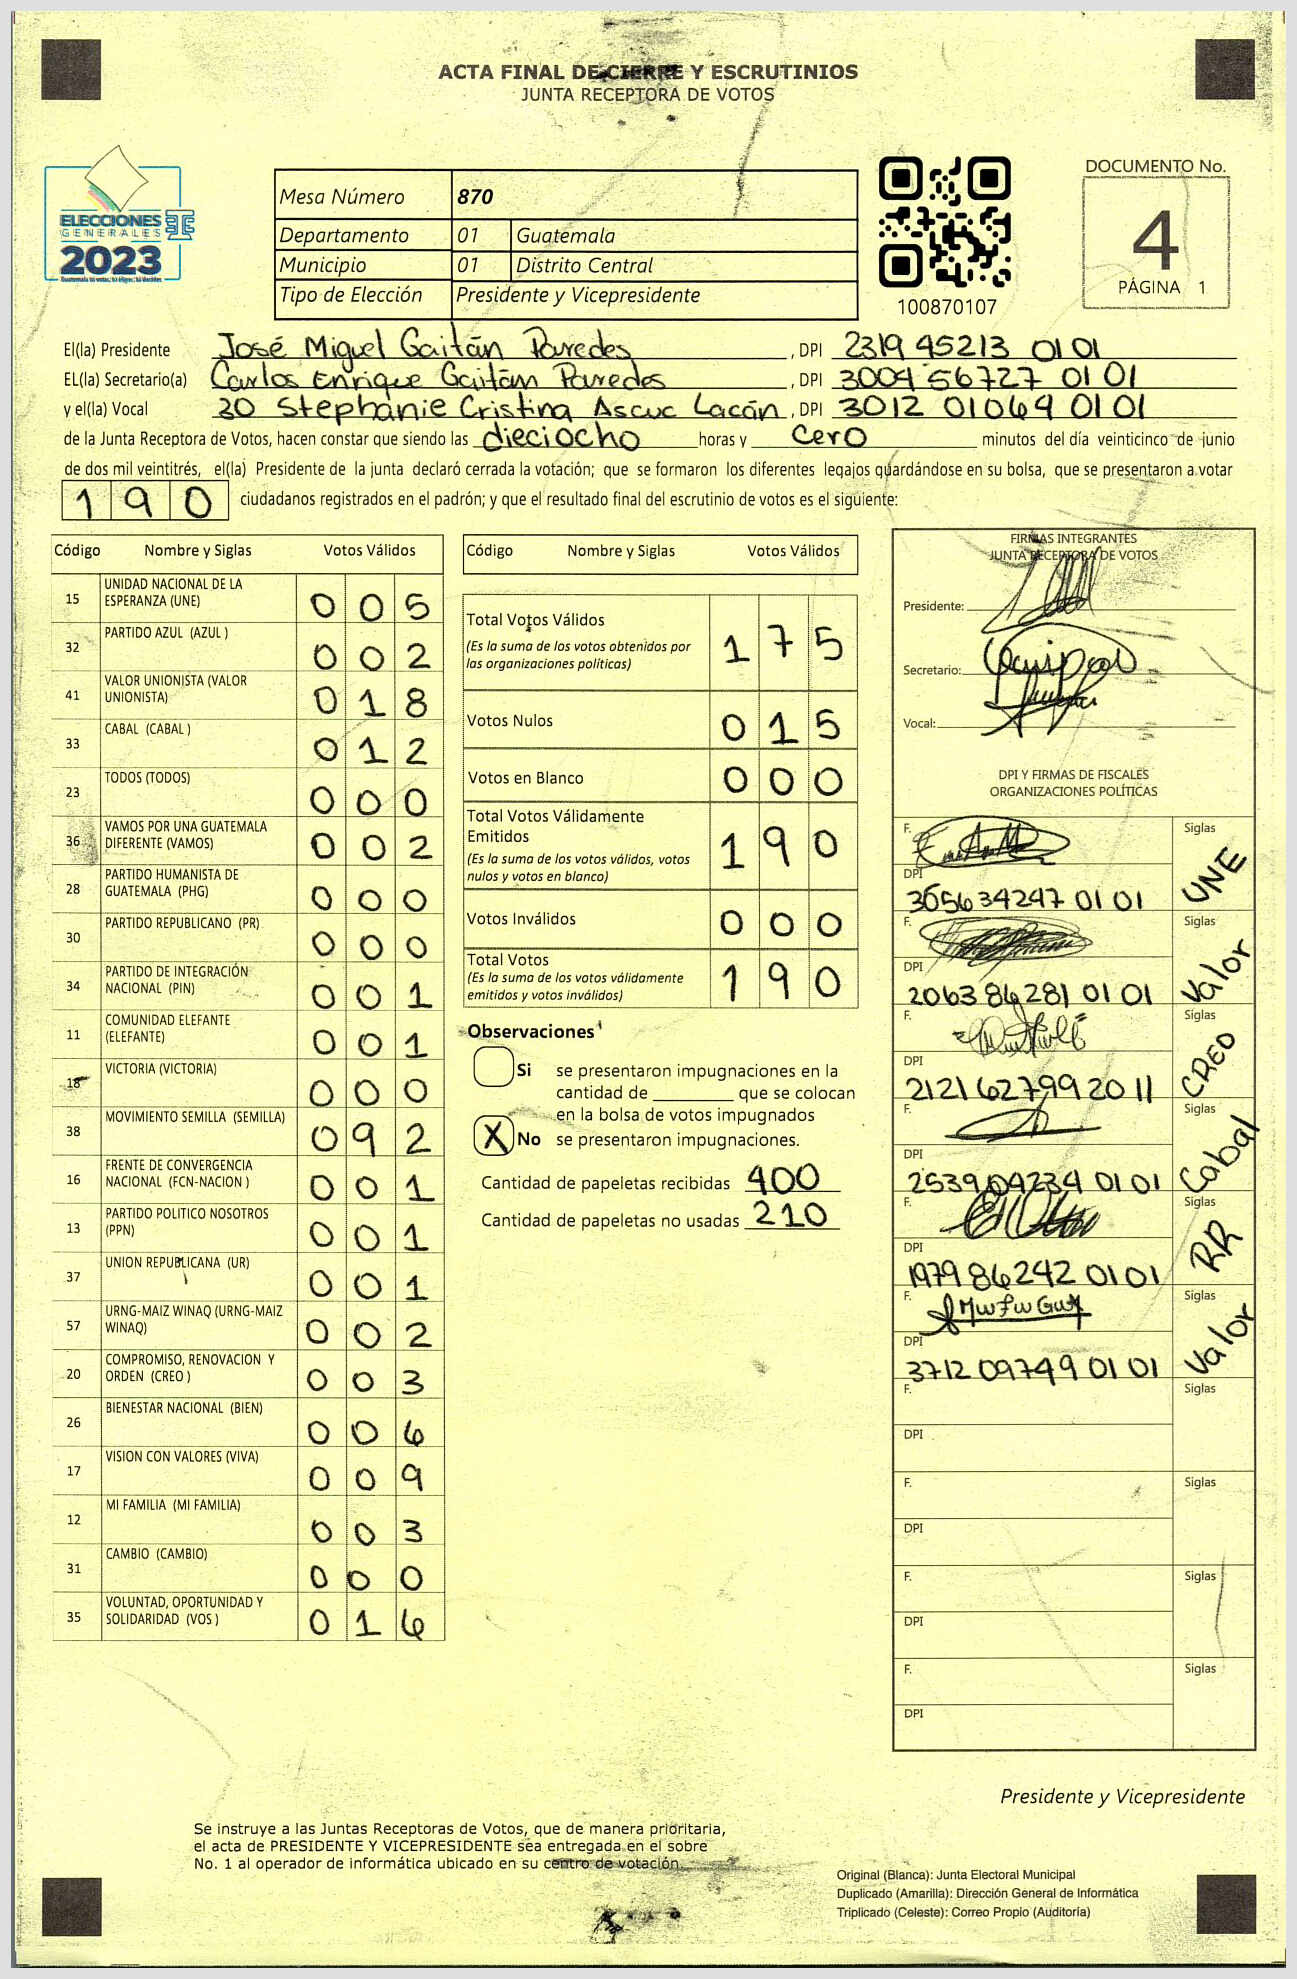 ACTA FINAL DE CIERRE Y ESCRUTINIOS
JUNTA RECEPTORA DE VOTOS
ELECCIONES
GENERALES
2023
Mesa Número 870
Departamento 01 Guatemala
Municipio 01 Distrito Central
Tipo de Elección Presidente y Vicepresidente
100870107
DOCUMENTO No.
4
PÁGINA 1
El(la) Presidente José Miguel Gaitán Paredes, DPI 2319 45213 0101
EL(la) Secretario(a) Carlos Enrique Gaitán Paredes, DPI 3004 56727 0101
y el(la) Vocal 30 Stephanie Cristina Ascuc Lacán, DPI 3012 01069 0101
de la Junta Receptora de Votos, hacen constar que siendo las dieciocho horas y cero minutos del día veinticinco de junio
de dos mil veintitrés, el(la) Presidente de la junta declaró cerrada la votación; que se formaron los diferentes legajos guardándose en su bolsa, que se presentaron a votar
190 ciudadanos registrados en el padrón; y que el resultado final del escrutinio de votos es el siguiente:
Código Nombre y Siglas Votos Válidos
15 UNIDAD NACIONAL DE LA ESPERANZA (UNE) 005
32 PARTIDO AZUL (AZUL ) 002
41 VALOR UNIONISTA (VALOR UNIONISTA) 018
33 CABAL (CABAL ) 012
23 TODOS (TODOS) 000
36 VAMOS POR UNA GUATEMALA DIFERENTE (VAMOS) 002
28 PARTIDO HUMANISTA DE GUATEMALA (PHG) 000
30 PARTIDO REPUBLICANO (PR) 000
34 PARTIDO DE INTEGRACIÓN NACIONAL (PIN) 001
11 COMUNIDAD ELEFANTE (ELEFANTE) 001
18 VICTORIA (VICTORIA) 000
38 MOVIMIENTO SEMILLA (SEMILLA) 092
16 FRENTE DE CONVERGENCIA NACIONAL (FCN-NACION ) 001
13 PARTIDO POLITICO NOSOTROS (PPN) 001
37 UNION REPUBLICANA (UR) 001
57 URNG-MAIZ WINAQ (URNG-MAIZ WINAQ) 002
20 COMPROMISO, RENOVACION Y ORDEN (CREO ) 003
26 BIENESTAR NACIONAL (BIEN) 006
17 VISION CON VALORES (VIVA) 009
12 MI FAMILIA (MI FAMILIA) 003
31 CAMBIO (CAMBIO) 000
35 VOLUNTAD, OPORTUNIDAD Y SOLIDARIDAD (VOS ) 016
Código Nombre y Siglas Votos Válidos
Total Votos Válidos 175
(Es la suma de los votos obtenidos por
las organizaciones políticas)
Votos Nulos 015
Votos en Blanco 000
Total Votos Válidamente
Emitidos 190
(Es la suma de los votos válidos, votos
nulos y votos en blanco)
Votos Inválidos 000
Total Votos 190
(Es la suma de los votos válidamente
emitidos y votos inválidos)
Observaciones
Si se presentaron impugnaciones en la
cantidad de ________ que se colocan
en la bolsa de votos impugnados
X No se presentaron impugnaciones.
Cantidad de papeletas recibidas 400
Cantidad de papeletas no usadas 210
FIRMAS INTEGRANTES
JUNTA RECEPTORA DE VOTOS
Presidente:
Secretario:
Vocal:
DPI Y FIRMAS DE FISCALES
ORGANIZACIONES POLÍTICAS
F. Siglas UNE
DPI 305634247 0101
F. Siglas Valor
DPI 2063 86281 0101
F. Siglas CREO
DPI 2121 62799 2011
F. Siglas Cabal
DPI 2539 04234 0101
F. Siglas RR
DPI 1979 86242 0101
F. Siglas Valor
DPI 3712 09749 0101
F. Siglas
DPI
F. Siglas
DPI
F. Siglas
DPI
F. Siglas
DPI
Presidente y Vicepresidente
Se instruye a las Juntas Receptoras de Votos, que de manera prioritaria,
el acta de PRESIDENTE Y VICEPRESIDENTE sea entregada en el sobre
No. 1 al operador de informática ubicado en su centro de votación.
Original (Blanca): Junta Electoral Municipal
Duplicado (Amarilla): Dirección General de Informática
Triplicado (Celeste): Correo Propio (Auditoría)